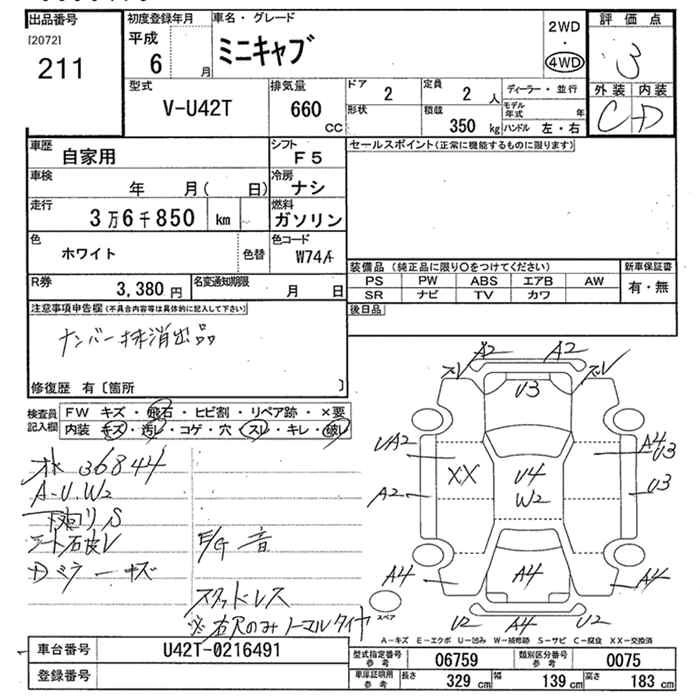 出品番号
[2072]
211
初度登録年月
平成
6 月
車名・グレード
ミニキャブ
2WD
・
4WD
評価点
3
外装 内装
C D
型式
V-U42T
排気量
660 CC
ドア
2
定員
2 人
形状
積載
350 kg
ディーラー・並行
モデル年式 年
ハンドル 左・右
車歴
自家用
シフト
F5
車検
年 月( 日)
冷房
ナシ
走行
3万6千850 km
燃料
ガソリン
色
ホワイト
色替
色コード
W74A
R券
3,380 円
名変通知期限
月 日
セールスポイント(正常に機能するものに限ります)
装備品 (純正品に限り○をつけてください)
PS PW ABS エアB AW
SR ナビ TV カワ
新車保証書
有・無
後日品
注意事項申告欄(不具合内容等は具体的に記入して下さい)
ナンバー抹消出品
修復歴 有〔箇所 〕
検査員記入欄
FW キズ・飛石・ヒビ割・リペア跡・×要
内装 キズ・汚レ・コゲ・穴・スレ・キレ・破レ
36844
A・U・W2
S
シート石皮V
E/G 音
スタッドレス
※右尺のみノーマルタイヤ
A2 A2
U3
UA2
A2
XX
U4
W2
A4
U3
U3
A4
A4
A4
U2 A4 U2
スペア
A-キズ E-エクボ U-凹み W-補修跡 S-サビ C-腐食 XX-交換済
車台番号
U42T-0216491
登録番号
型式指定番号
参考
06759
類別区分番号
参考
0075
車庫証明用
参考
長さ 329 cm 幅 139 cm 高さ 183 cm